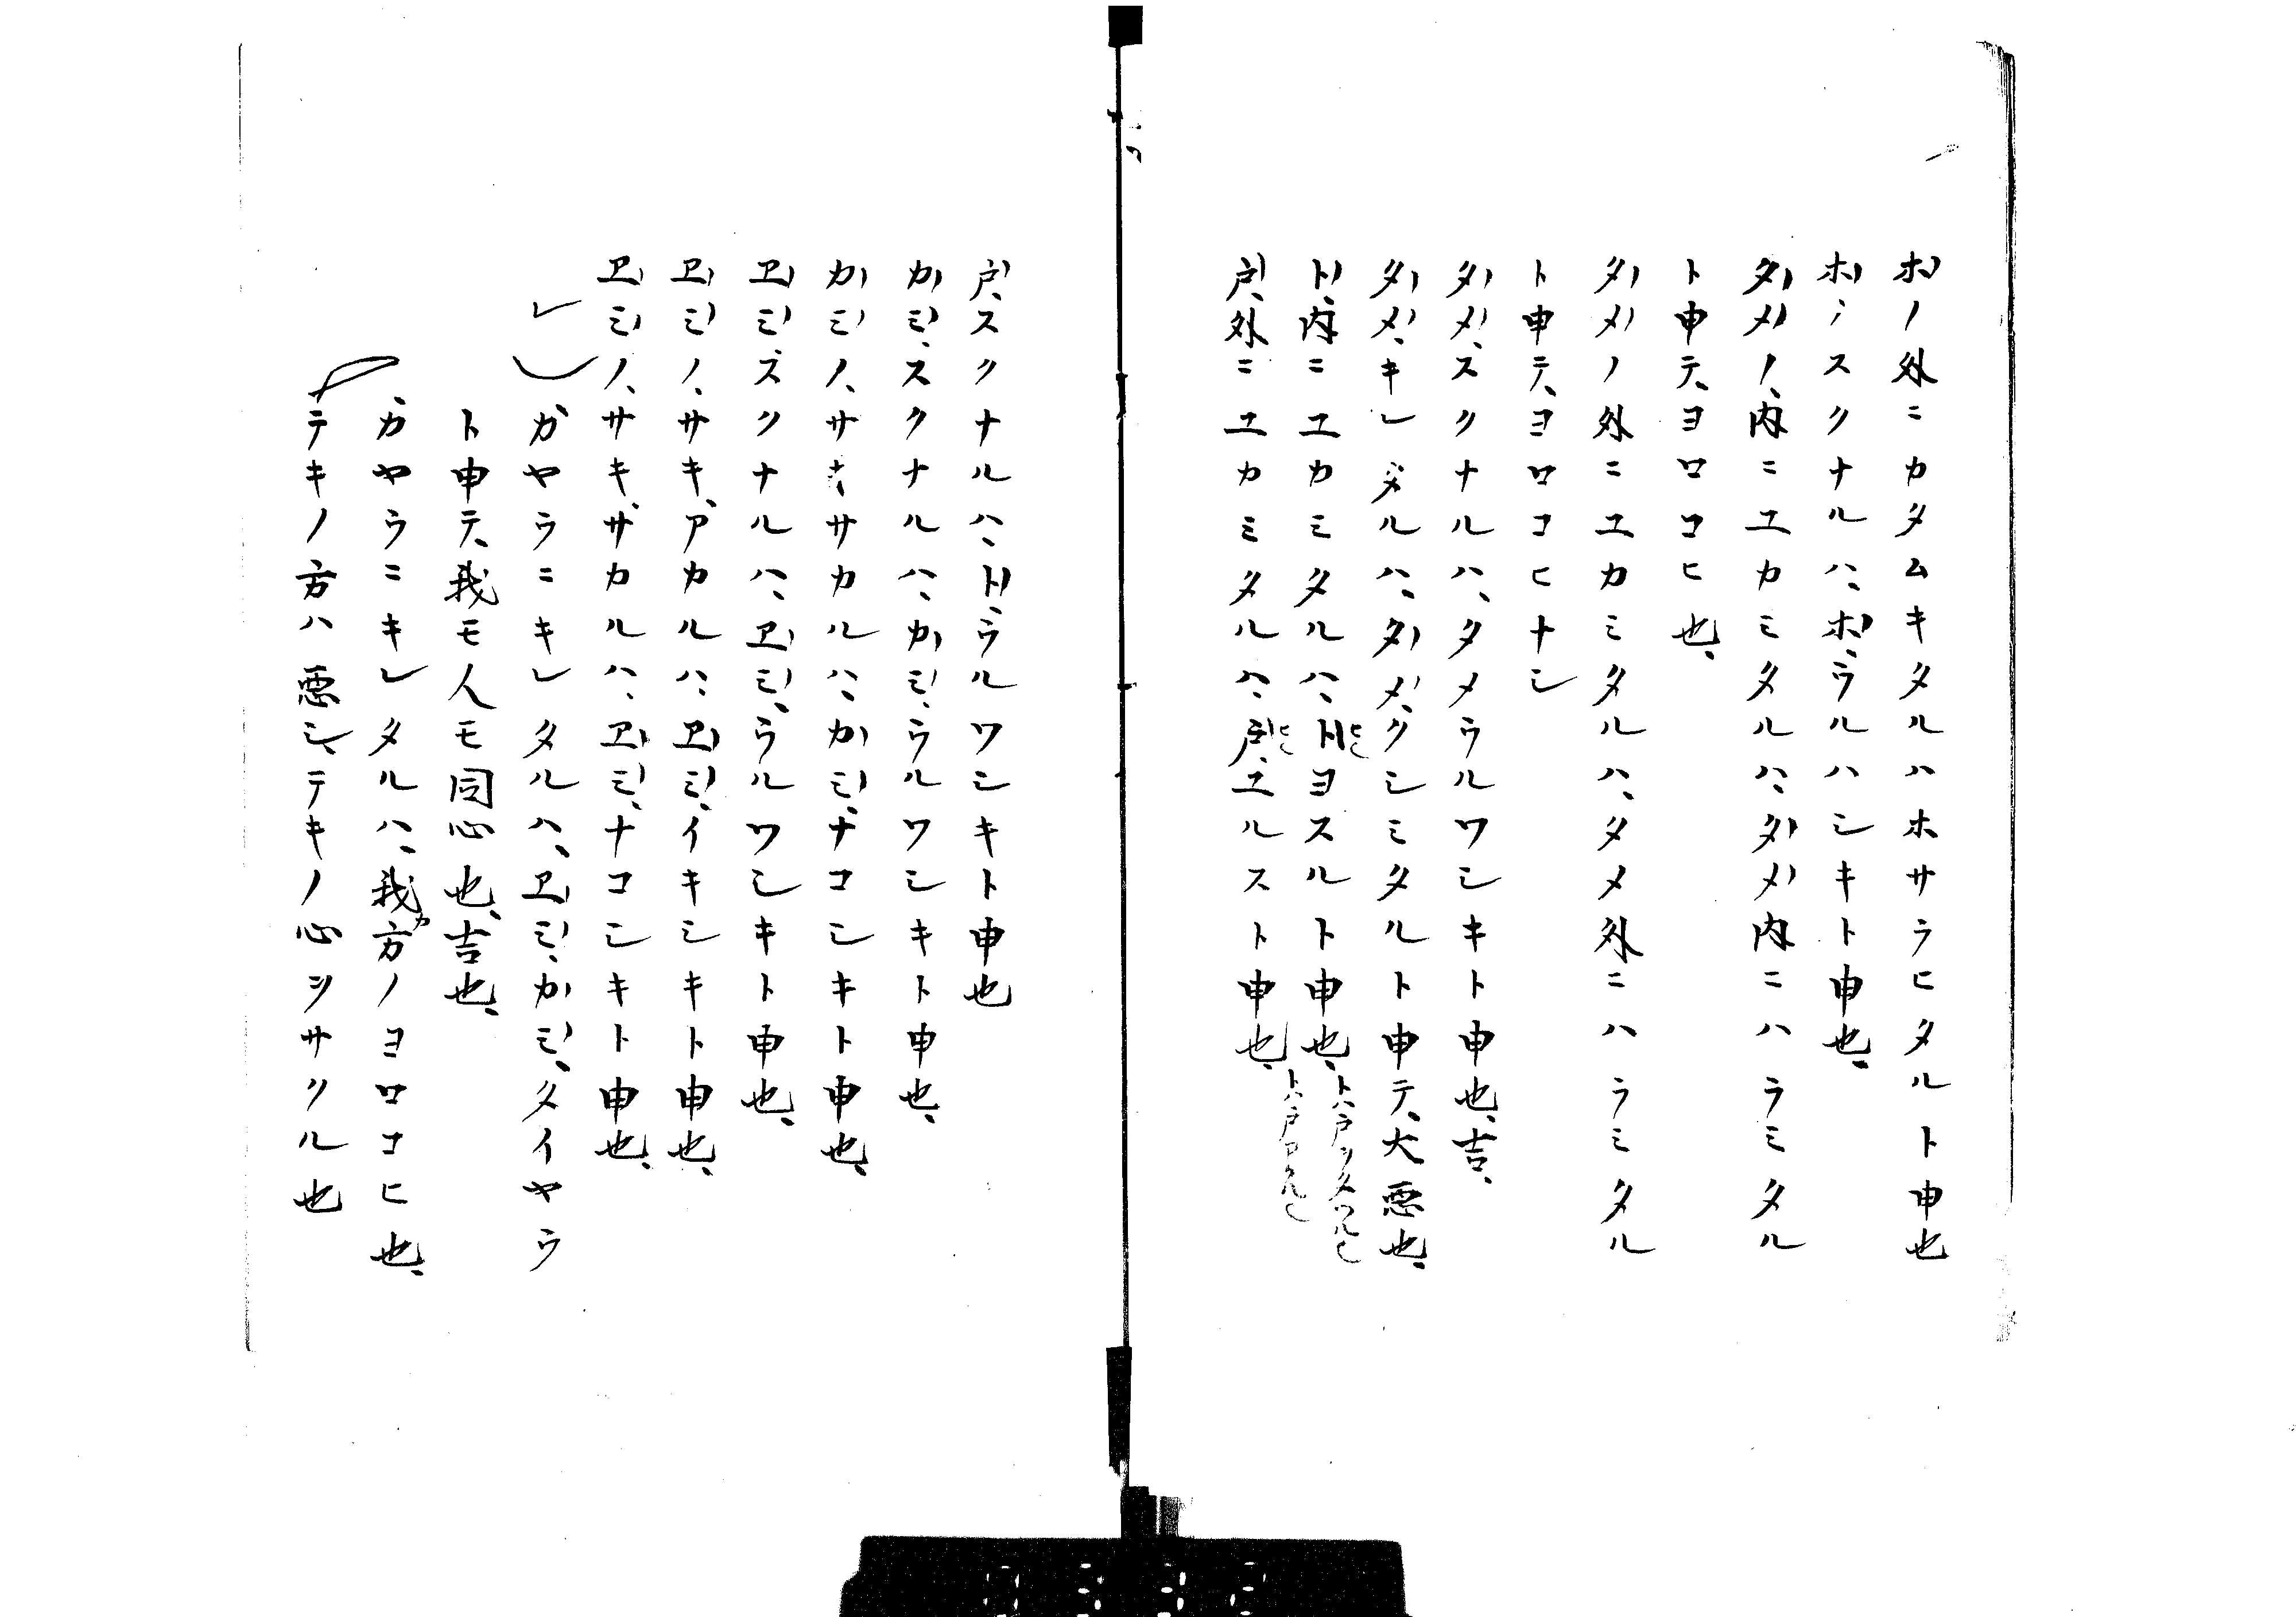 ホノ外ニカタムキタルハホサラヒタルト申也
ホノスクナルハ、ホウルハシキト申也、
タメノ、内ニユカミタルハ、タメ内ニハラミタル
ト申テ、ヨロコヒ也、
タメノ外ニユカミタルハ、タメ外ニハラミタル
ト申テ、ヨロコヒナシ
タメ、スクナルハ、タメウルワシキト申也、吉、
タメ、キレタルハ、タメ、クシミタルト申テ、大悪也、
ト、内ニユカミタルハ、トヨスルト申也、
戸、外ニユカミタルハ、戸、ユルスト申也、
戸、スクナルハ、トウルワシキト申也
カミ、スクナルハ、カミ、ウルワシキト申也、
カミノ、サキサカルハ、カミ、ナコシキト申也、
ヱミスクナルハ、ヱミ、ウルワシキト申也、
ヱミノ、サキ、アカルハ、ヱミ、イキシキト申也、
ヱミノ、サキサカルハ、ヱミ、ナコシキト申也、
カヤウニキレタルハ、ヱミ、カミ、タイヤウ
ト申テ、我モ人モ同心也、吉也、
カヤウニキレタルハ、我カ方ノヨロコヒ也、
テキノ方ハ悪シ、テキノ心ヲサクル也